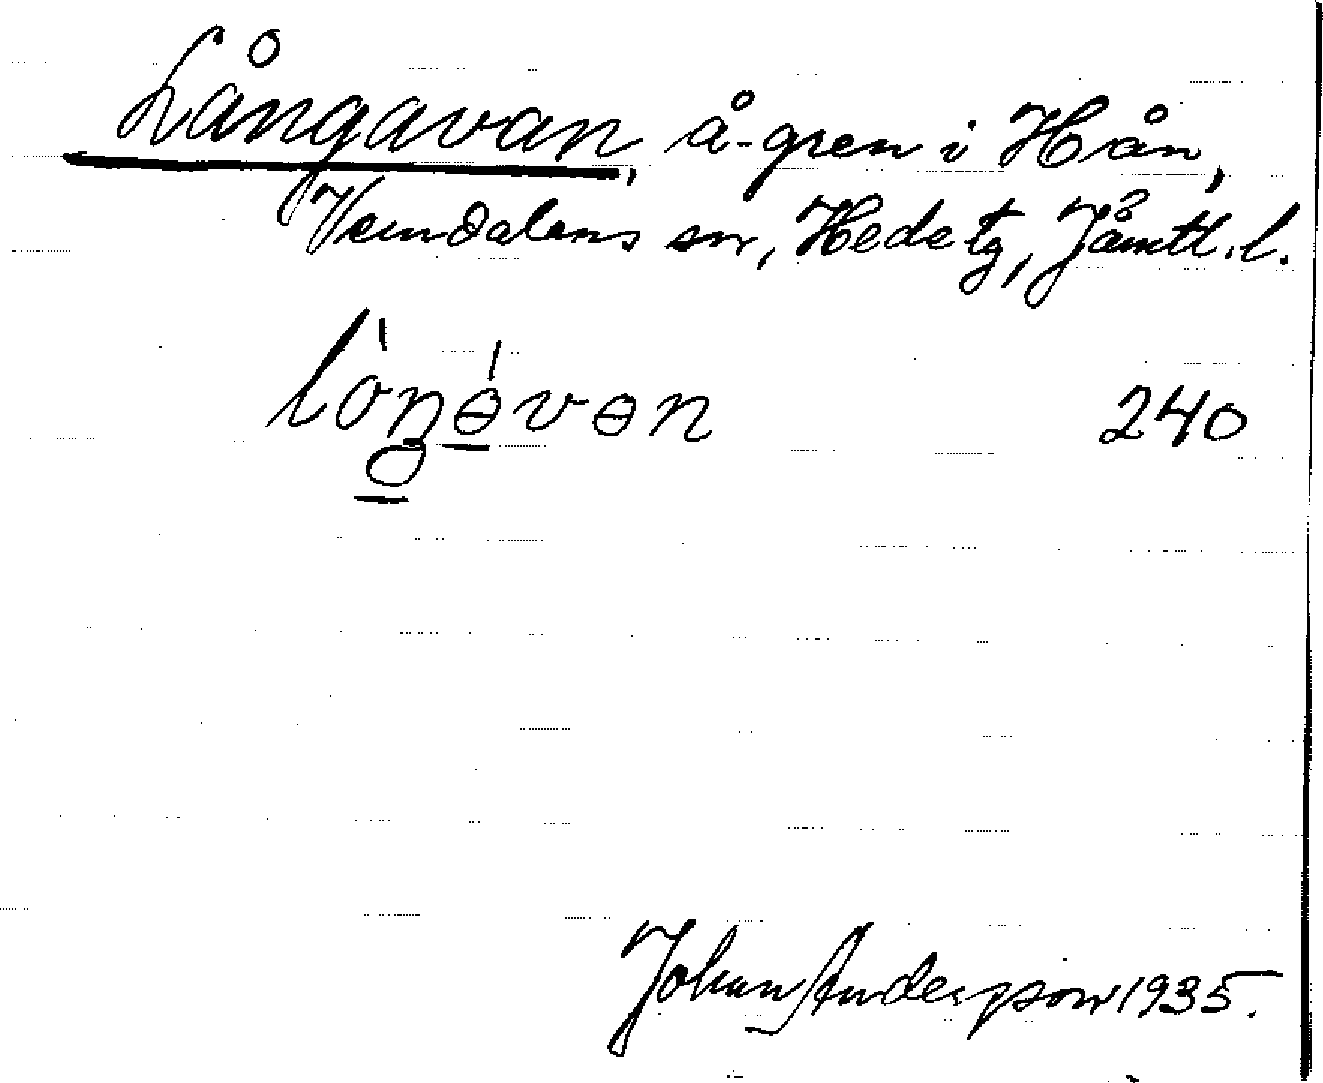 Långavan, å-gren i Hån,
Vemdalens sn, Hede tg, Jämtl. l.
lòŋə́vən 240
Johan Anderson 1935.